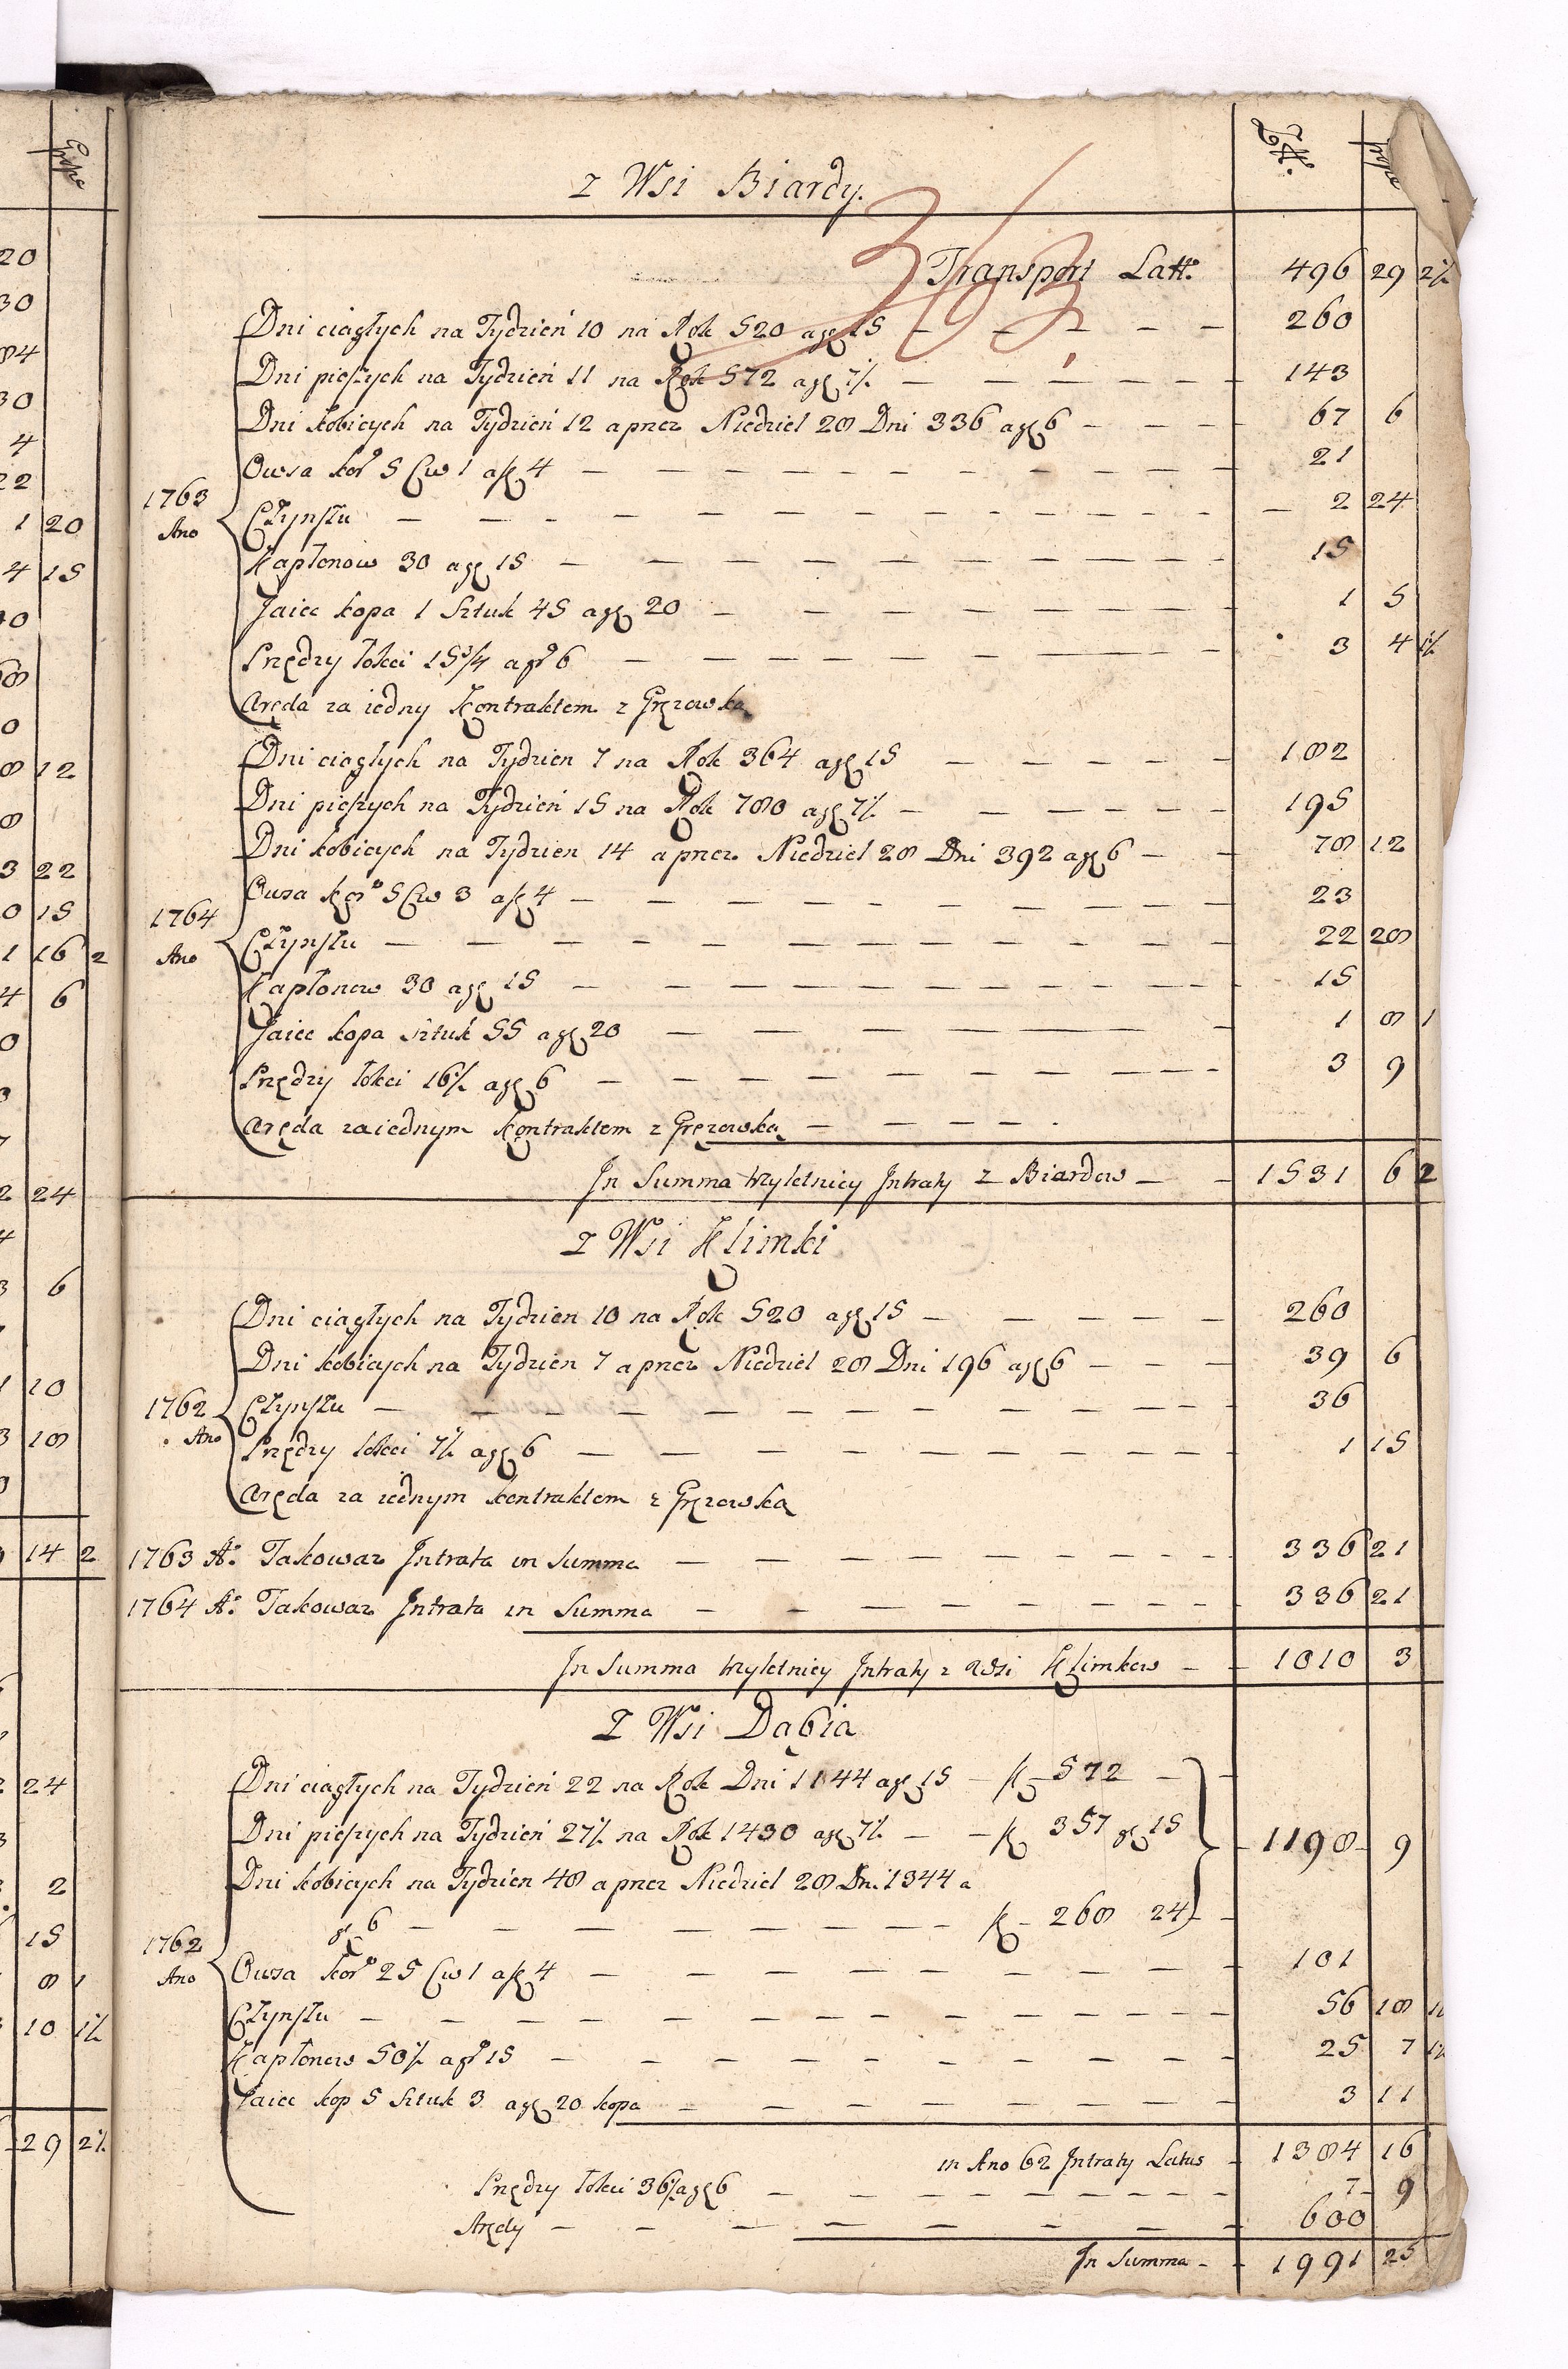 Złt. grosze
Z Wsi Biardy.
363
Transport Latt: 496 29 2½
Dni ciągłych na Tydzień 10 na Rok 520 a gr 15 — 260
Dni pieszych na Tydzień 11 na Rok 572 a gr 7½ — 143
Dni kobicych na Tydzień 12 a przez Niedziel 28 Dni 336 a gr 6 — 67 6
Owsa kor 5 Cw 1 a zł 4 — 21
1763 Ano
Czynszu — 2 24
Kapłonow 30 a gr 15 — 15
Jaiec kopa 1 Sztuk 45 a gr 20 — 1 5
Przędzy łokci 15¾ a gr 6 — 3 4 ½
Aręda za iedny Kontraktem z Gręzowską
Dni ciągłych na Tydzien 7 na Rok 364 a gr 15 — 182
Dni pieszych na Tydzień 15 na Rok 780 a gr 7½ — 195
Dni kobicych na Tydzien 14 a przez Niedziel 28 Dni 392 a gr 6 — 78 12
Owsa kor 5 Cw 3 a zł 4 — 23
1764 Ano
Czynszu — 22 28
Kapłonow 30 a gr 15 — 15
Jaiec kopa sztuk 55 a gr 20 — 1 8 1
Przędzy łokci 16½ a gr 6 — 3 9
Aręda za iednym Kontraktem z Gręzowską —
In Summa trzyletniey Intraty z Biardow — 1531 6 2
Z Wsi Klimki
Dni ciągłych na Tydzien 10 na Rok 520 a gr 15 — 260
Dni kobicych na Tydzien 7 a przez Niedziel 28 Dni 196 a gr 6 — 39 6
1762 Ano
Czynszu — 36
Przędzy łokci 7½ a gr 6 — 1 15
Aręda za iednym kontraktem z Gręzowską
1763 A: Takowaz Intrata in Summa — 336 21
1764 A: Takowaz Intrata in Summa — 336 21
In Summa trzyletniey Intraty z Wsi Klimkow — 1010 3
Z Wsi Dąbia
Dni ciągłych na Tydzień 22 na Rok Dni 1144 a gr 15 — zł 572
Dni pieszych na Tydzień 27½ na Rok 1430 a gr 7½ — zł 357 gr 15 — 1198 9
Dni kobicych na Tydzień 48 a przez Niedziel 28 Dni 1344 a
gr 6 — zł 268 24
1762 Ano
Owsa kor 25 Cw 1 a zł 4 — 101
Czynszu — 56 18
Kapłonow 50½ a gr 15 — 25 7 1½
Jaiec kop 5 Sztuk 3 a gr 20 kopa — 3 11
in Ano 62 Intraty Latus — 1384 16
Przędzy łokci 36½ a gr 6 — 7 9
Arędy — 600
In Summa — 1991 25